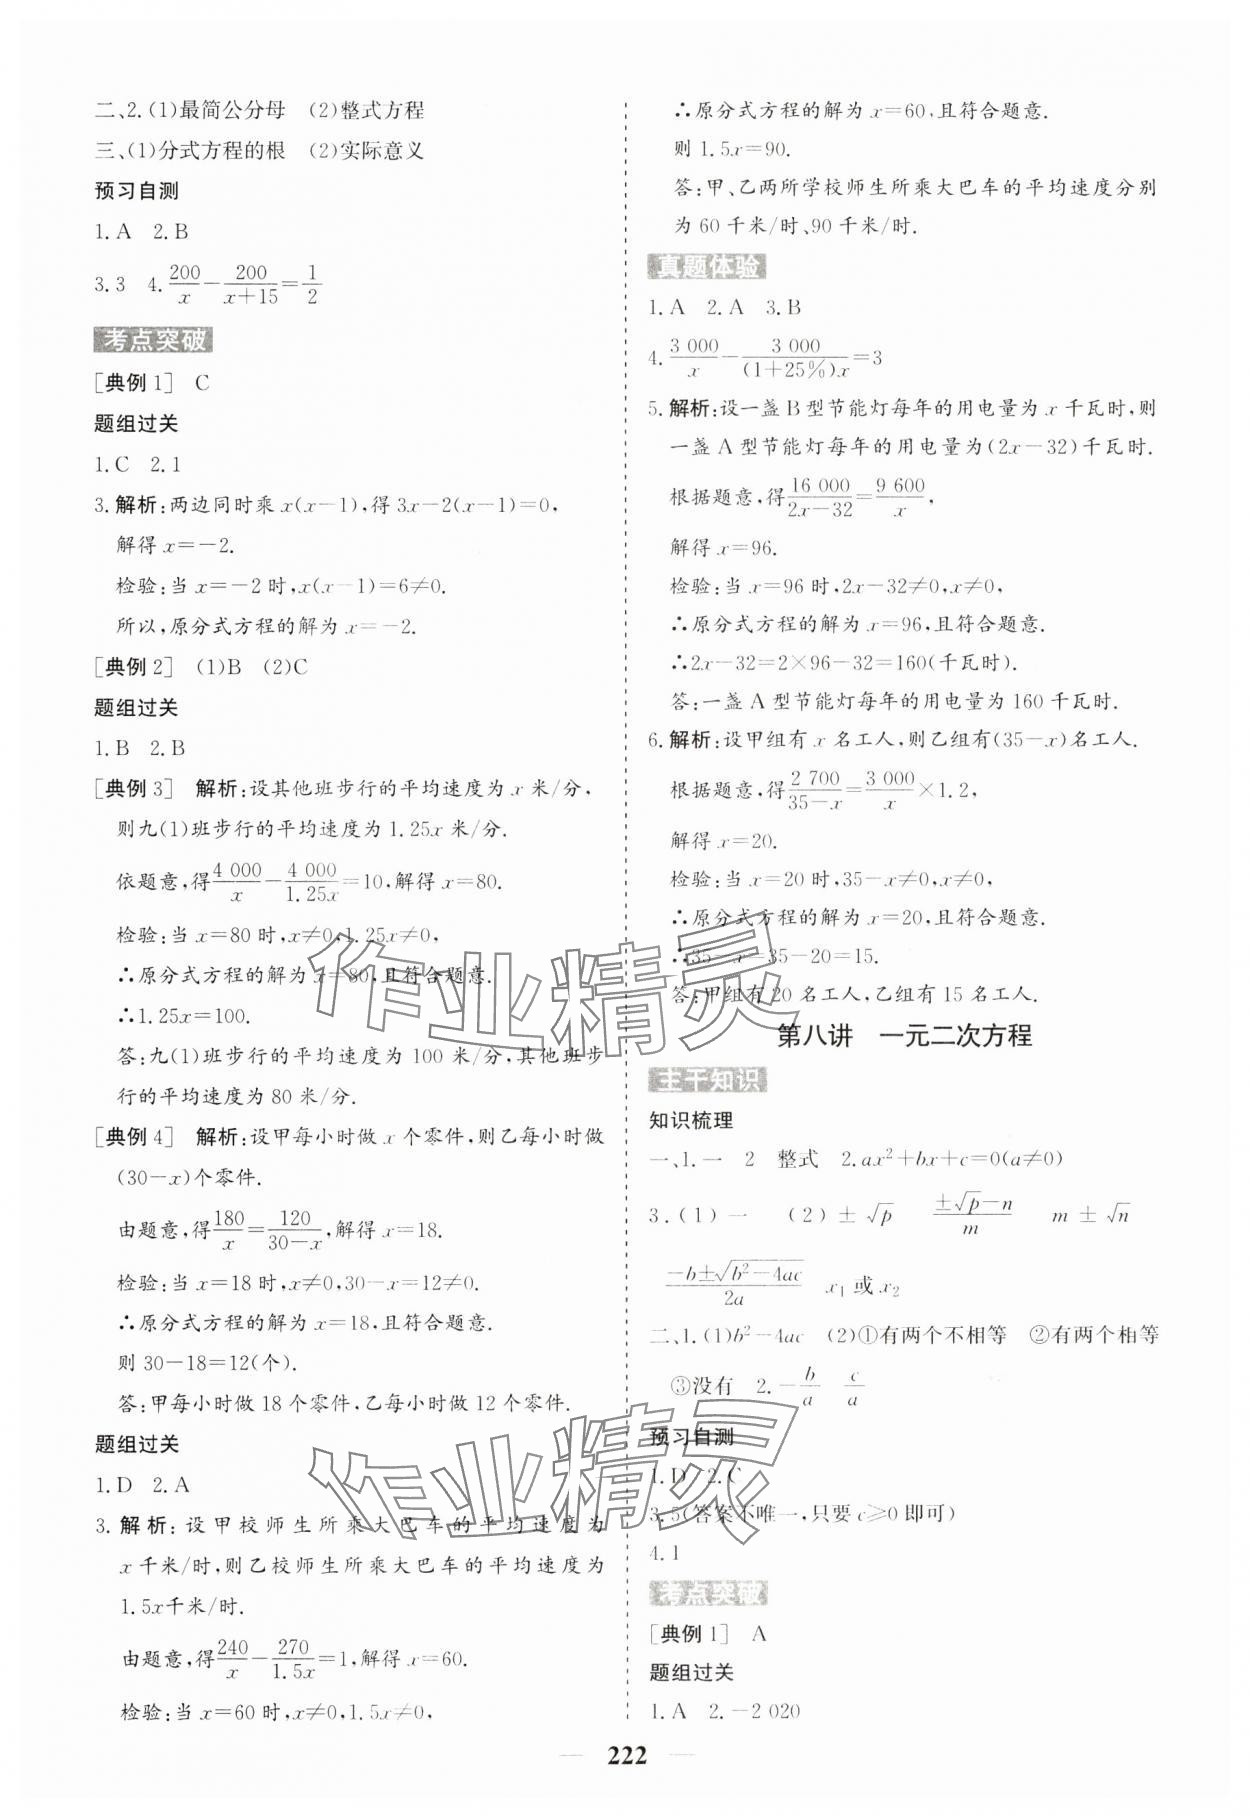 二、2.(1)最简公分母　(2)整式方程
三、(1)分式方程的根　(2)实际意义
预习自测
1.A　2.B
3.3　4.200/x－200/(x+15)=1/2
考点突破
[典例1]　C
题组过关
1.C　2.1
3.解析:两边同时乘x(x－1),得3x－2(x－1)=0,
解得x=－2.
检验:当x=－2时,x(x－1)=6≠0.
所以,原分式方程的解为x=－2.
[典例2]　(1)B　(2)C
题组过关
1.B　2.B
[典例3]　解析:设其他班步行的平均速度为x米/分,
则九(1)班步行的平均速度为1.25x米/分.
依题意,得4 000/x－4 000/1.25x=10,解得x=80.
检验:当x=80时,x≠0,1.25x≠0,
∴原分式方程的解为x=80,且符合题意.
∴1.25x=100.
答:九(1)班步行的平均速度为100米/分,其他班步
行的平均速度为80米/分.
[典例4]　解析:设甲每小时做x个零件,则乙每小时做
(30－x)个零件.
由题意,得180/x=120/(30－x),解得x=18.
检验:当x=18时,x≠0,30－x=12≠0.
∴原分式方程的解为x=18,且符合题意.
则30－18=12(个).
答:甲每小时做18个零件,乙每小时做12个零件.
题组过关
1.D　2.A
3.解析:设甲校师生所乘大巴车的平均速度为
x千米/时,则乙校师生所乘大巴车的平均速度为
1.5x千米/时.
由题意,得240/x－270/1.5x=1,解得x=60.
检验:当x=60时,x≠0,1.5x≠0,
∴原分式方程的解为x=60,且符合题意.
则1.5x=90.
答:甲、乙两所学校师生所乘大巴车的平均速度分别
为60千米/时、90千米/时.
真题体验
1.A　2.A　3.B
4.3 000/x－3 000/(1+25%)x=3
5.解析:设一盏B型节能灯每年的用电量为x千瓦时,则
一盏A型节能灯每年的用电量为(2x－32)千瓦时.
根据题意,得16 000/(2x－32)=9 600/x,
解得x=96.
检验:当x=96时,2x－32≠0,x≠0,
∴原分式方程的解为x=96,且符合题意.
∴2x－32=2×96－32=160(千瓦时).
答:一盏A型节能灯每年的用电量为160千瓦时.
6.解析:设甲组有x名工人,则乙组有(35－x)名工人.
根据题意,得2 700/(35－x)=3 000/x×1.2,
解得x=20.
检验:当x=20时,35－x≠0,x≠0,
∴原分式方程的解为x=20,且符合题意.
∴35－x=35－20=15.
答:甲组有20名工人,乙组有15名工人.
第八讲　一元二次方程
主干知识
知识梳理
一、1.一　2　整式　2.ax²+bx+c=0(a≠0)
3.(1)一　(2)±√p　(±√p－n)/m　m±√n
(－b±√(b²－4ac))/2a　x₁或x₂
二、1.(1)b²－4ac　(2)①有两个不相等　②有两个相等
③没有　2.－b/a　c/a
预习自测
1.D　2.C
3.5(答案不唯一,只要c≥0即可)
4.1
考点突破
[典例1]　A
题组过关
1.A　2.－2 020
222
作业精灵
作业精灵